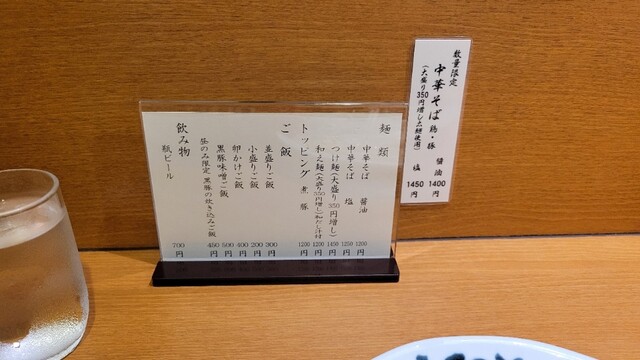 数量限定
中華そば 鶏・豚 醤油 1400円
(大盛り350円増し) 塩 1450円
麺類
中華そば 醤油 1200円
中華そば 塩 1250円
つけ麺(大盛り350円増し) 1450円
和え麺(大盛り350円増し)和だし汁付 1200円
トッピング 煮豚 1200円
ご飯
並盛りご飯 300円
小盛りご飯 200円
卵かけご飯 400円
黒豚味噌ご飯 500円
昼のみ限定 黒豚の炊き込みご飯 450円
飲み物
瓶ビール 700円